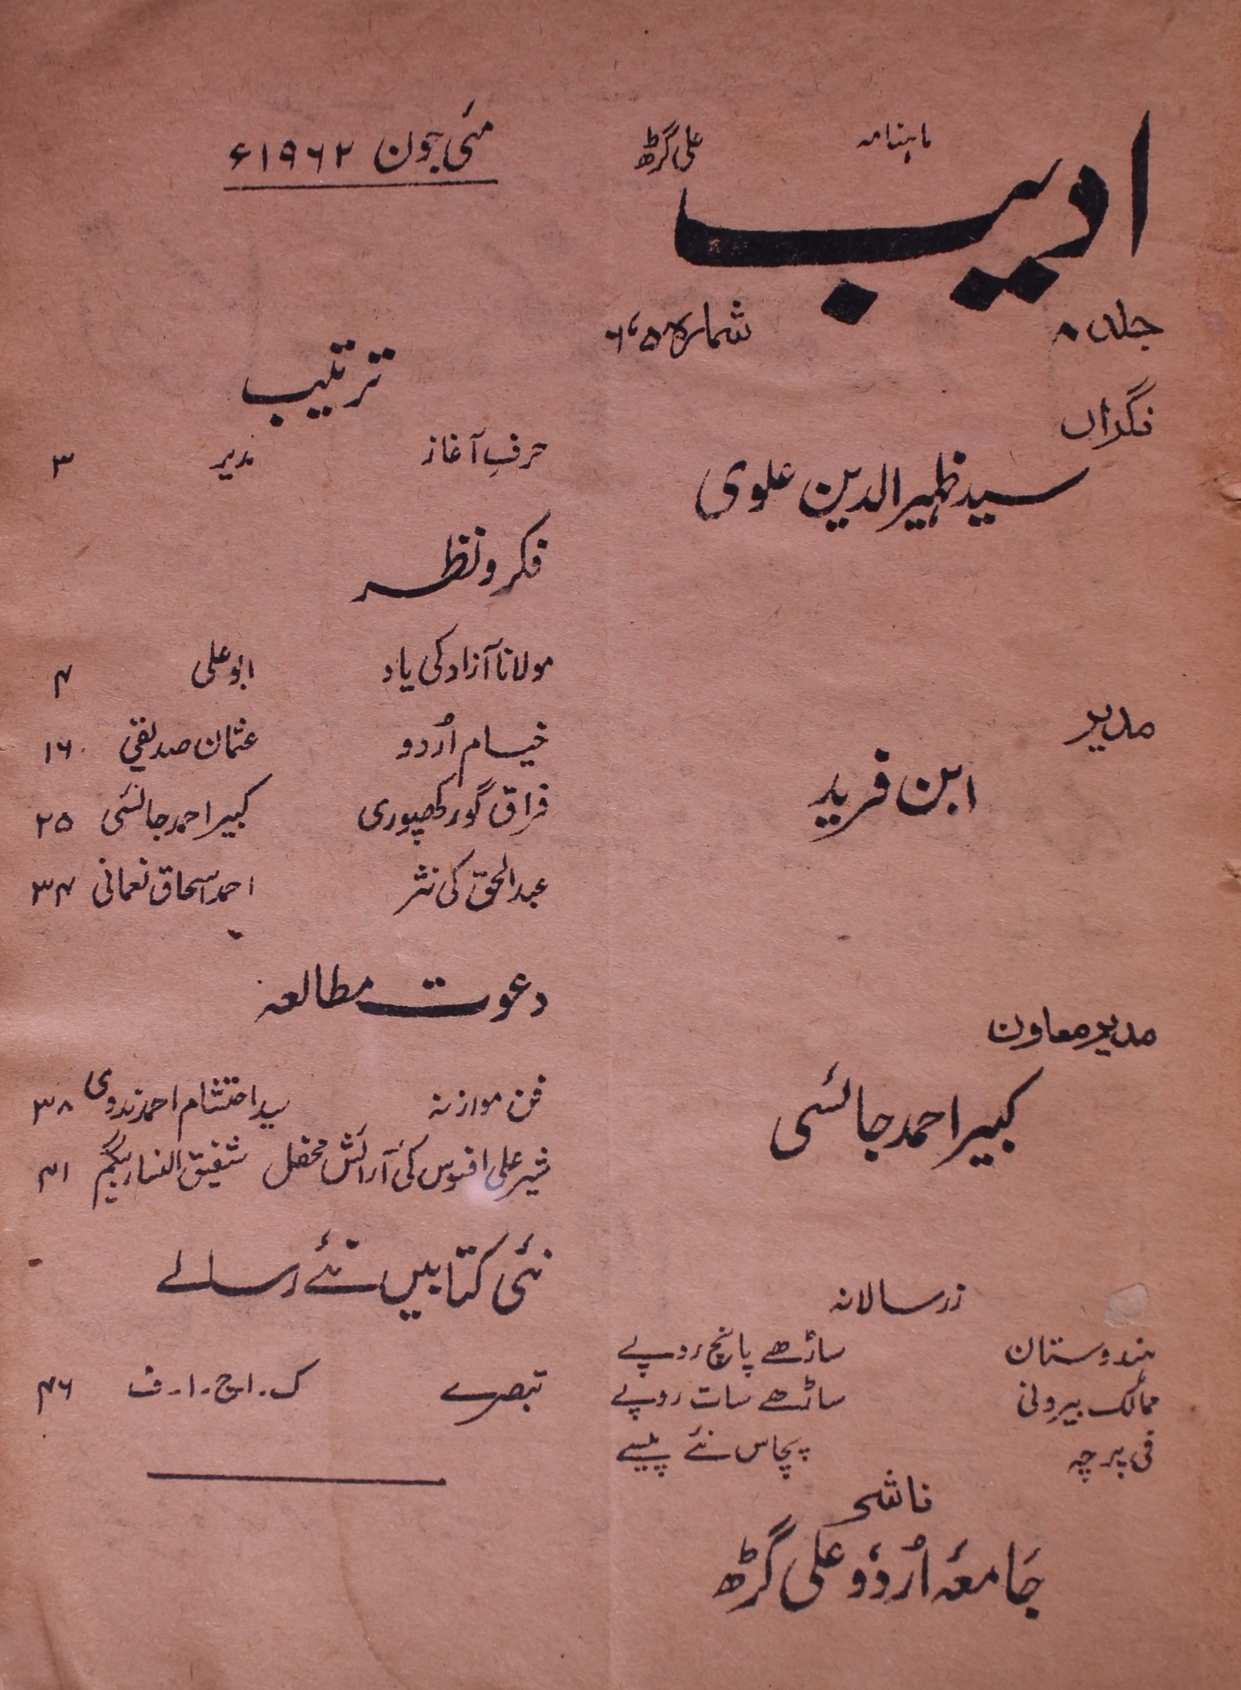 ماہنامہ
علی گڑھ
ادیب
جلد ۸
شمارہ ۵، ۶
نگراں
سید ظہیر الدین علوی
مدیر
ابن فرید
مدیر معاون
کبیر احمد جائسی
زر سالانہ
ہندوستان ساڑھے پانچ روپے
ممالک بیرونی ساڑھے سات روپے
فی پرچہ پچاس نئے پیسے
ناشر
جامعۂ اُردُو علی گڑھ
مئی جون ۱۹۶۲ء
ترتیب
حرفِ آغاز مدیر ۳
فکر و نظر
مولانا آزاد کی یاد ابو علی ۴
خیام اُردو عثمان صدیقی ۱۶
فراق گورکھپوری کبیر احمد جائسی ۲۵
عبدالحق کی نثر احمد اسحاق نعمانی ۳۴
دعوت مطالعہ
فن موازنہ سید احتشام احمد ندوی ۳۸
شیر علی افسوس کی آرائش محفل شفیق النساء بیگم ۴۱
نئی کتابیں نئے رسالے
تبصرے ک۔ ا ج۔ ا۔ ف ۴۶